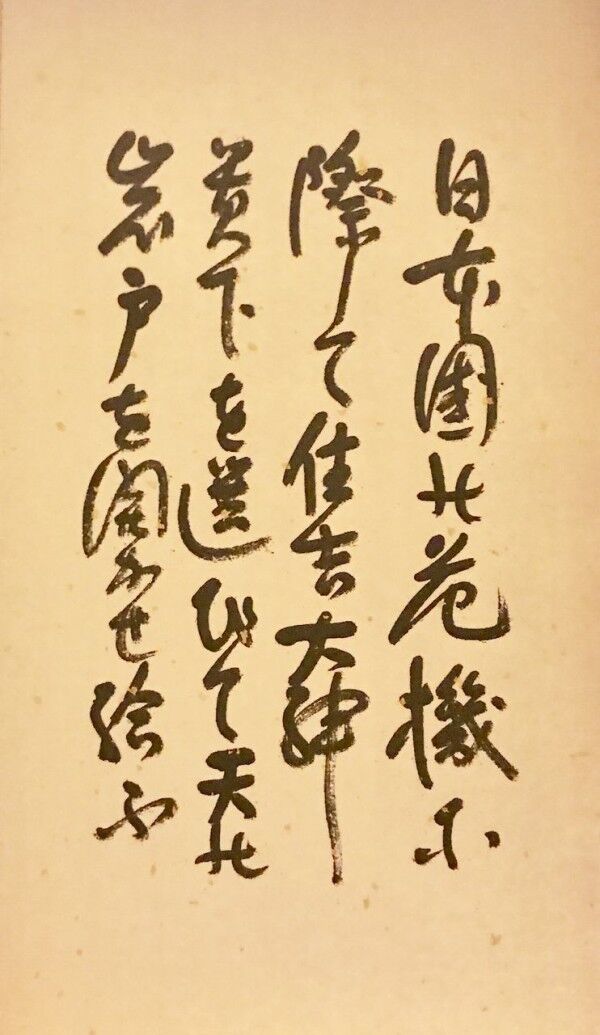 日本國の危機に
際て住吉大神
貴下を選びて天の
岩戸を開かせ給ふ